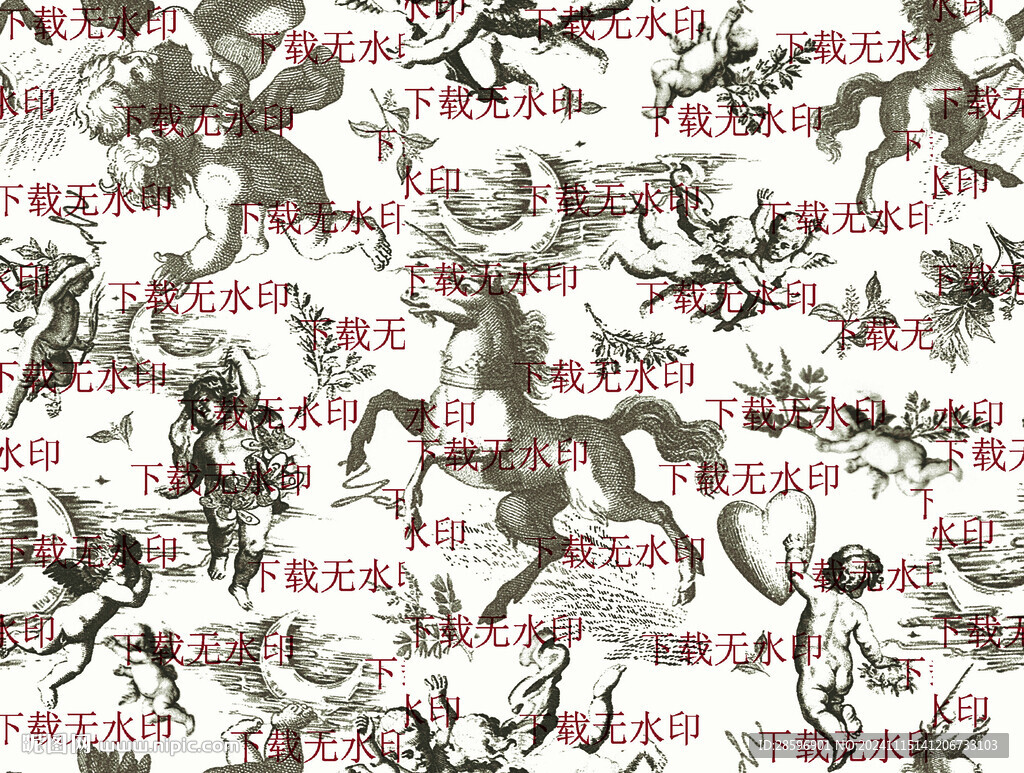 下载无水印 水印 下载无水印 水印
下载无水印 下载无水印
水印 下载无水印 下载无水印 下载无
下载无水印 下载无水印
下 下
水印 水印
下载无水印 下载无水印
下载无水印 下载无水
水印 下载无水印 下载无
下载无水印 下载无水印
下载无 下载无
下载无水印 下载无水印
下载无水印 水印 下载无水印 水印
水印 下载无水印 下载无
下载无水印 下载无水印
下 下
水印 水印
下载无水印 下载无水印
下载无水 下载无水
水印 下载无水印 下载无
下载无水印 下载无水印
下载 下
水印 水印
下载无水印 下载无水印
下载无水印 下载无水
昵图网 www.nipic.com
ID:28596901 NO:20241115141206733103